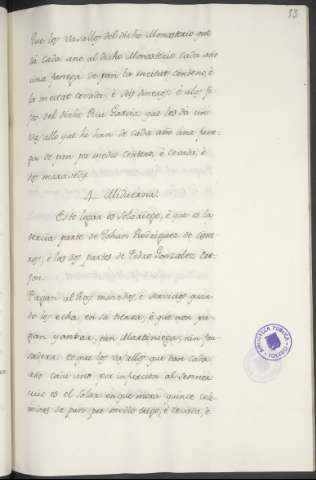 53
Que los vasallos del dicho Monasterio que
dá cada año al dicho Monasterio cada año
una fanega de pan la meitat centeno, è
la meitat cevada, è seis dineros: è à los fi-
jos del dicho Rui Garcia que les dà cin-
vasallo que he han de cada año una fane-
ga de pan por medio centeno, è cevada, è
to maravedis.
4 Midierna.
Este logar es Solariego, è que es la
tercia parte de Johan Rodriguez de Cisne-
ros, è los dos partes de Pedro Gonzalez
Pagan al Rey monedas, è servicios quan-
do los echa en su tierra, è que non pa-
gan yantar, nin Martiniega, nin fon-
sadera: et que los vasallos que dan cada
año cada uno por infurcion al Sennor
cuio es el Solar en que mora quince cele-
mines de pan por medio trigo, è cevada, è
BIBLIOTECA PUBLICA
TOLEDO